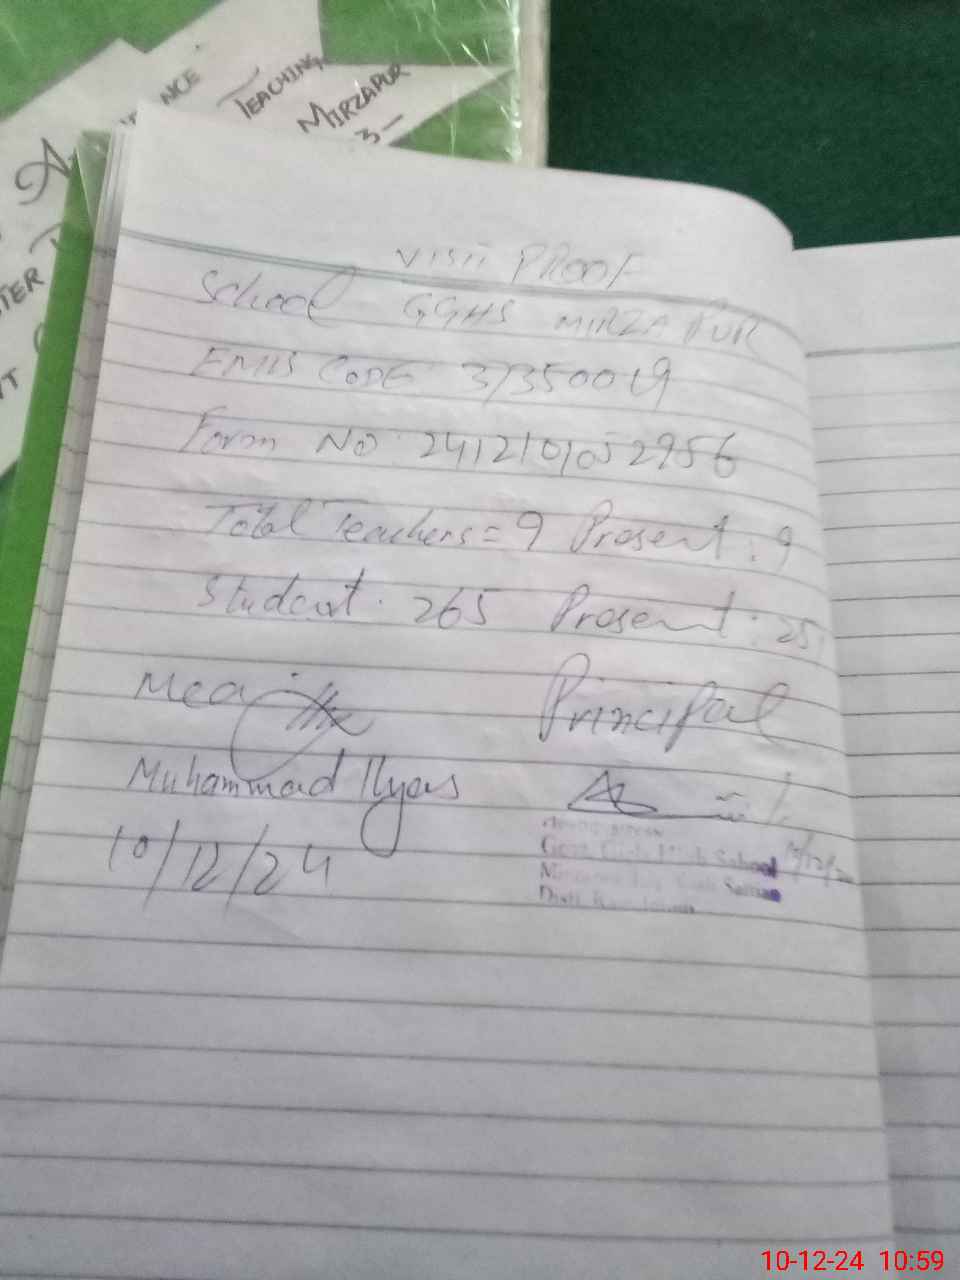 NCE
TEACHING
MIRZAPUR
3-
A
TER
NT
Visit PROOF
School GGHS MIRZA PUR
EMIS CODE 37350019
Form No 2412101052956
Total Teachers = 9 Present : 9
Student . 265 Present : 25
Mea
Principal
Muhammad Ilyas
10/12/24
Govt. Girls High School
Distt.
10-12-24 10:59